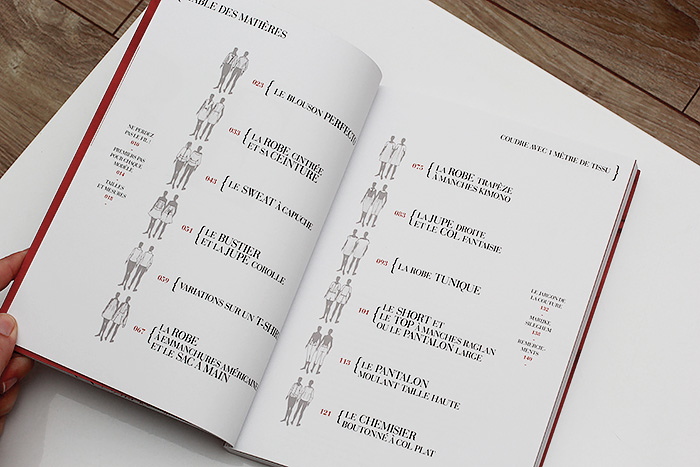 TABLE DES MATIÈRES
NE PERDEZ
PAS LE FIL!
010
PREMIERS PAS
POUR CHAQUE
MODÈLE
014
TAILLES
ET MESURES
018
023 { LE BLOUSON PERFECTO
033 { LA ROBE CINTRÉE
ET SA CEINTURE
043 { LE SWEAT À CAPUCHE
051 { LE BUSTIER
ET LA JUPE COROLLE
059 { VARIATIONS SUR UN T-SHIR
067 { LA ROBE
À EMMANCHURES AMÉRICAINE
ET LE SAC À MAIN
COUDRE AVEC 1 MÈTRE DE TISSU }
075 { LA ROBE TRAPÈZE
À MANCHES KIMONO
083 { LA JUPE DROITE
ET LE COL FANTAISIE
093 { LA ROBE TUNIQUE
101 { LE SHORT ET
LE TOP À MANCHES RAGLAN
OU LE PANTALON LARGE
113 { LE PANTALON
MOULANT TAILLE HAUTE
121 { LE CHEMISIER
BOUTONNÉ À COL PLAT
LE JARGON DE
LA COUTURE
132
MARIJKE
SILEGHEM
138
REMERCIE-
MENTS
140